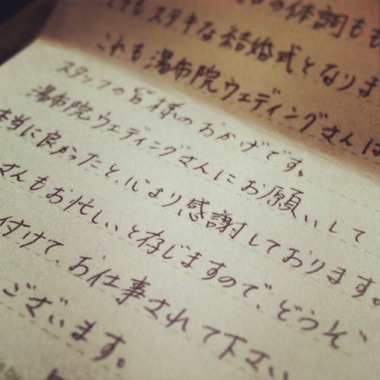 の体調もも
でもステキな結婚式となりま
これも湯布院ウェディングさんは
スタッフの皆様のおかげです。
湯布院ウェディングさんにお願いして
本当に良かったと、心より感謝しております。
さんもお忙しいと存じますので、どうぞ、
付けて、お仕事されて下さい
ございます。